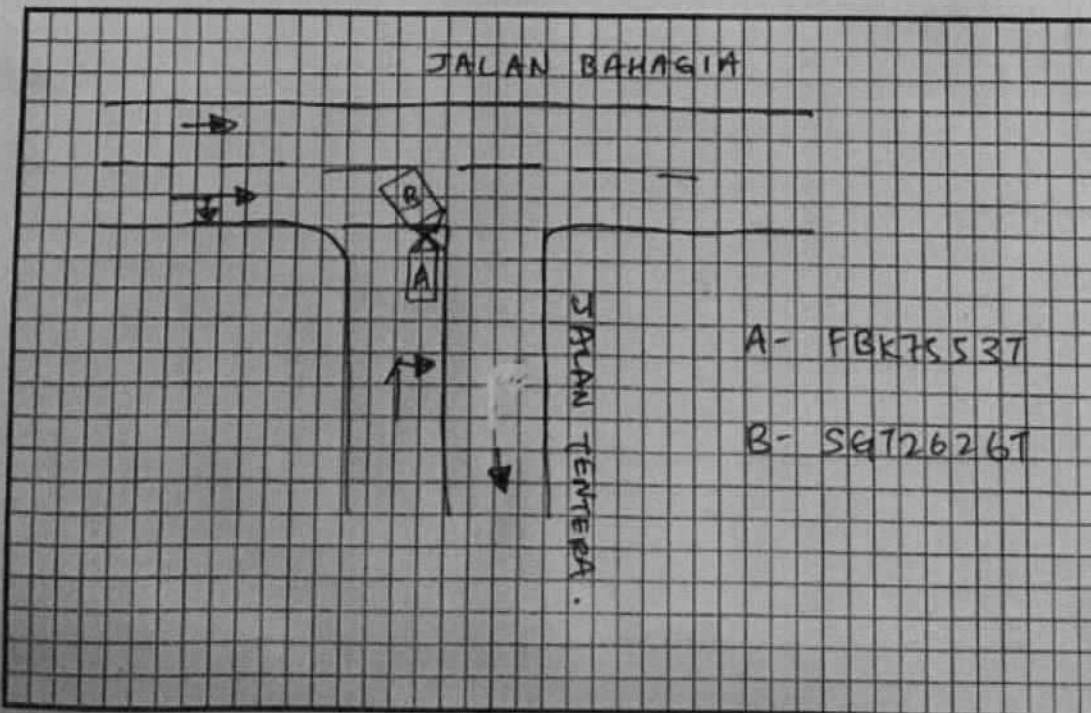 JALAN BAHAGIA
B
A
JALAN TENTERA.
A- FBK7553T
B- SGT2626T